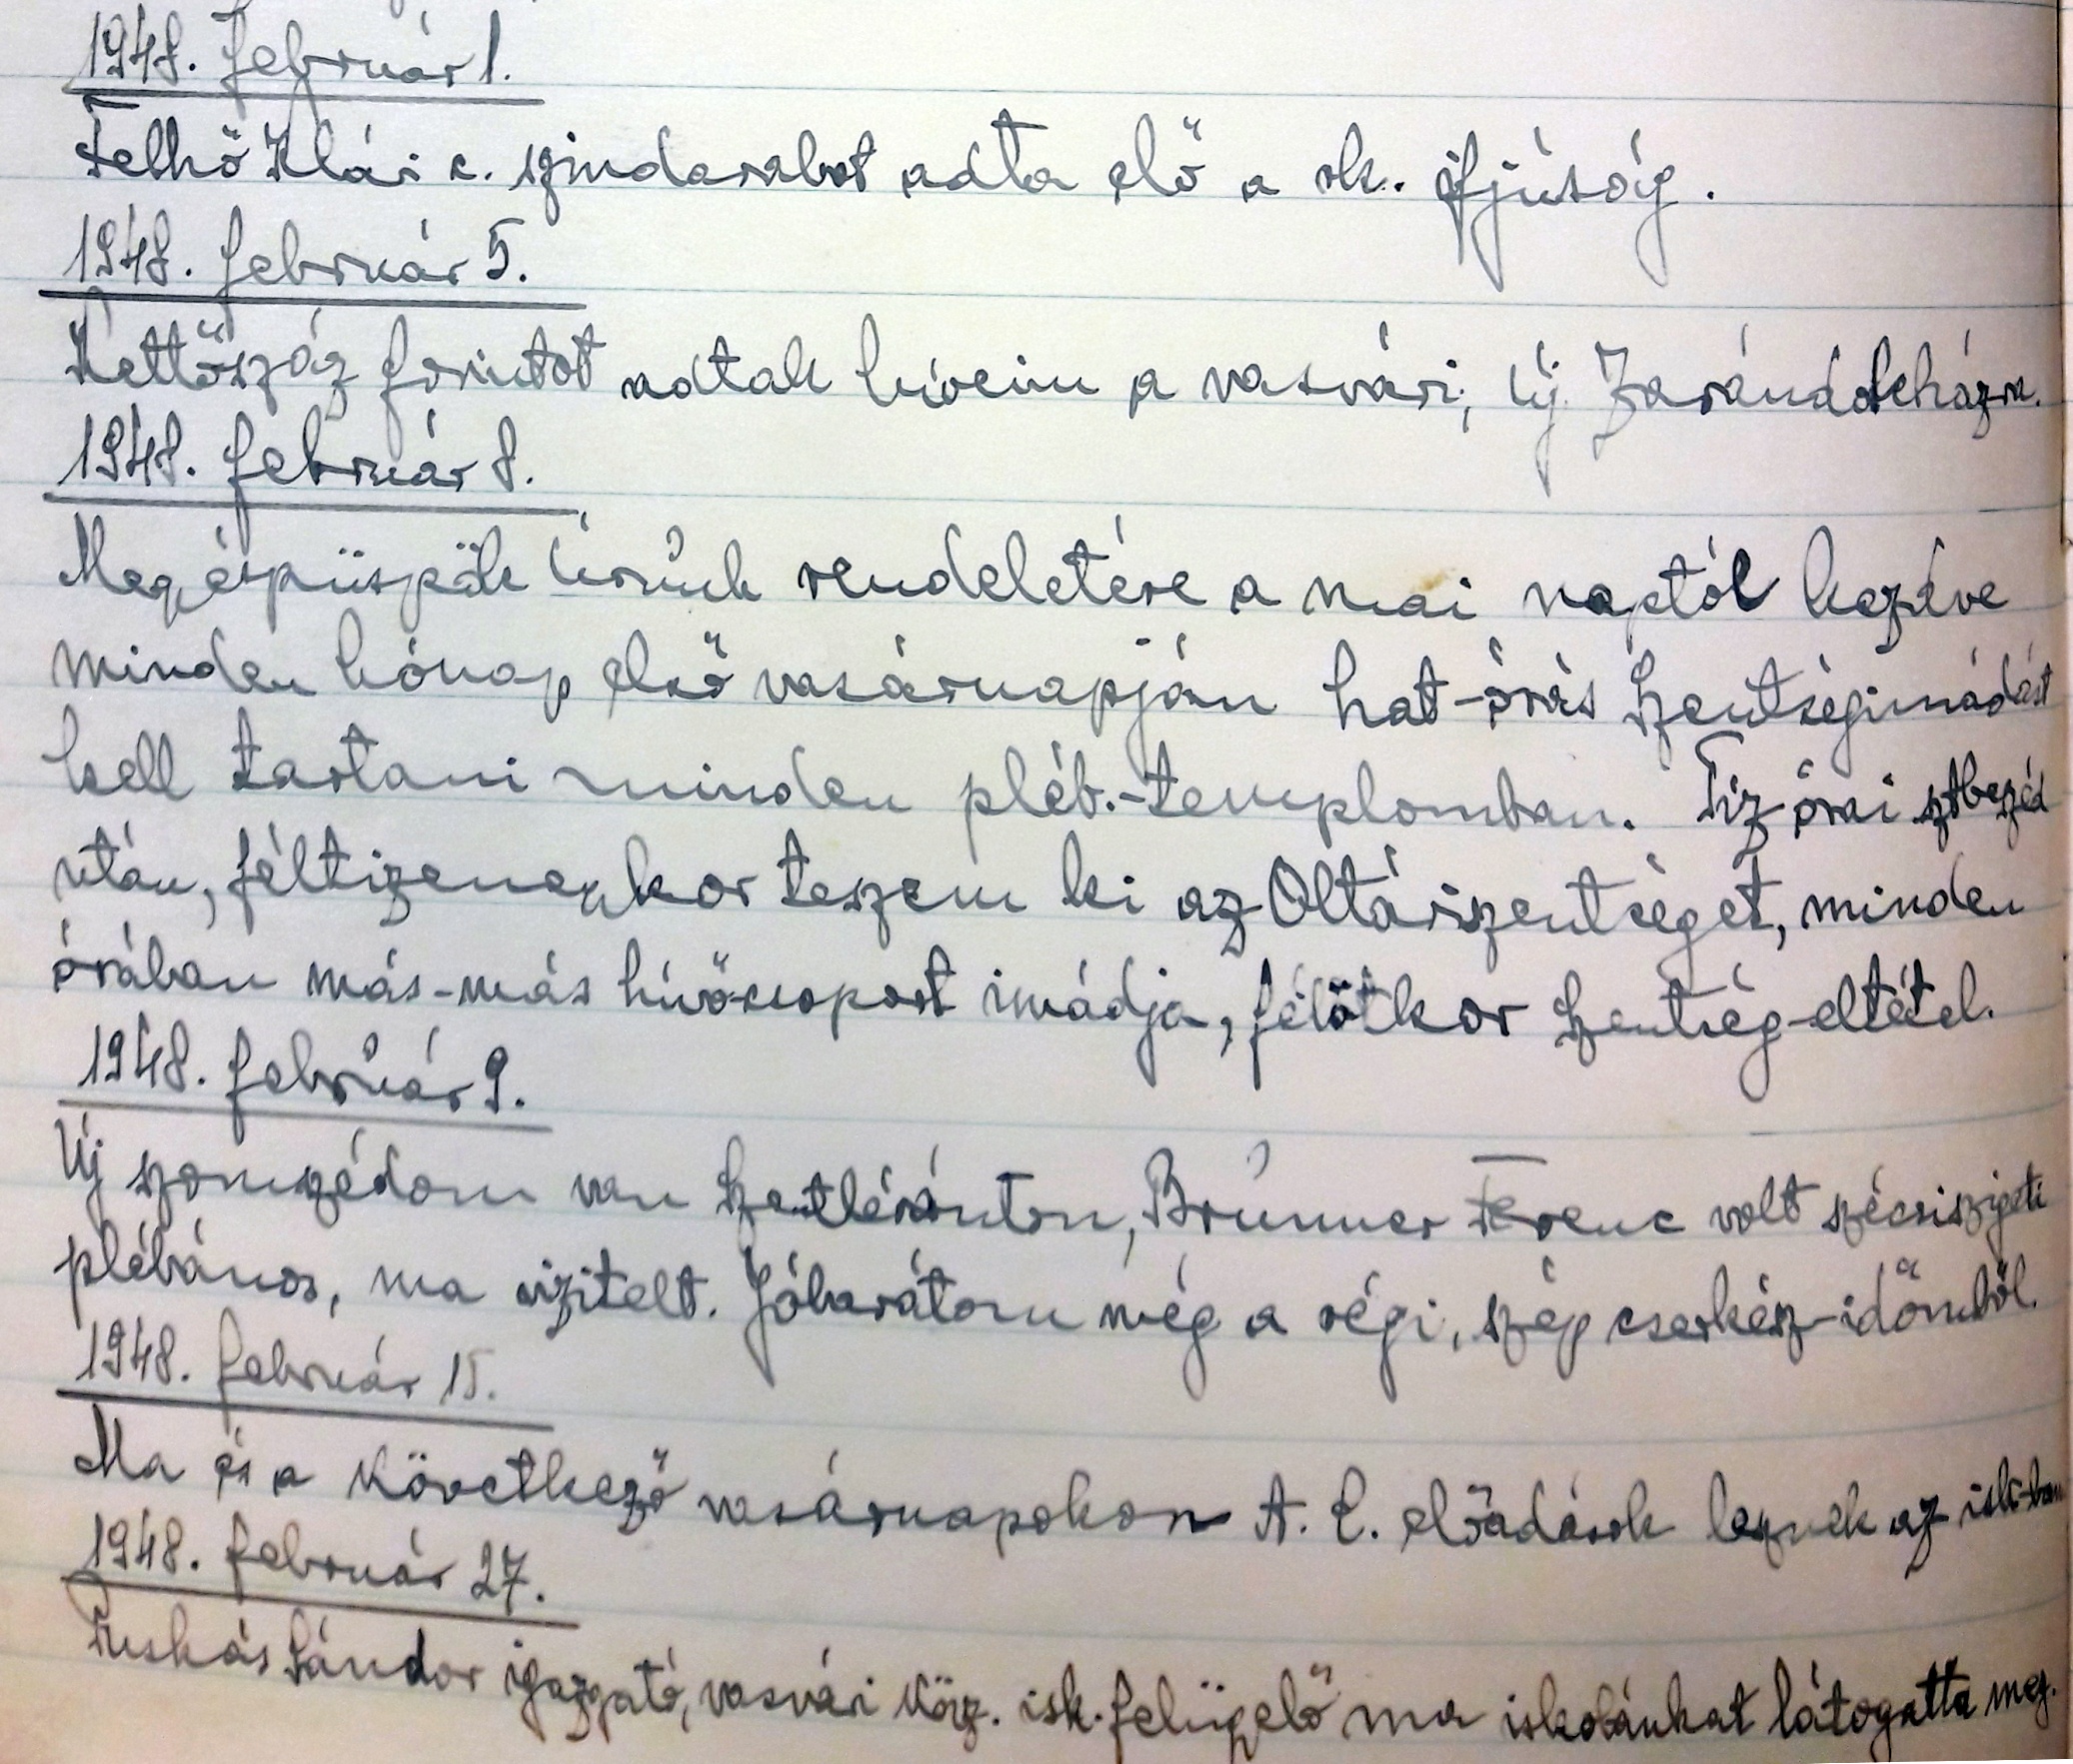 1948. február 1.
Felhő Klári c. szindarabot adta elő a rk. ifjúság.
1948. február 5.
Kettőszáz forintot adtak híveim a vasvári, új Zarándokházra.
1948. február 8.
Megyéspüspök Úrunk rendeletére a mai naptól kezdve
minden hónap első vasárnapján hat-órás Szentségimádást
kell tartani minden pléb.-templomban. Tiz órai sztbeszéd
után, féltizenegykor teszem ki az Oltáriszentséget, minden
órában más-más hívőcsoport imádja, félötkor Szentség-eltétel.
1948. február 9.
Új szomszédom van Szentléránton, Brunner Ferenc volt szécsiszigeti
plébános, ma vizitelt. Jóbarátom még a régi, szép cserkész-időmből.
1948. február 15.
Ma és a következő vasárnapokon A. C. előadások lesznek az isk-ban
1948. február 27.
Puskás Sándor igazgató, vasvári körz. isk. felügyelő ma iskolánkat látogatta meg.